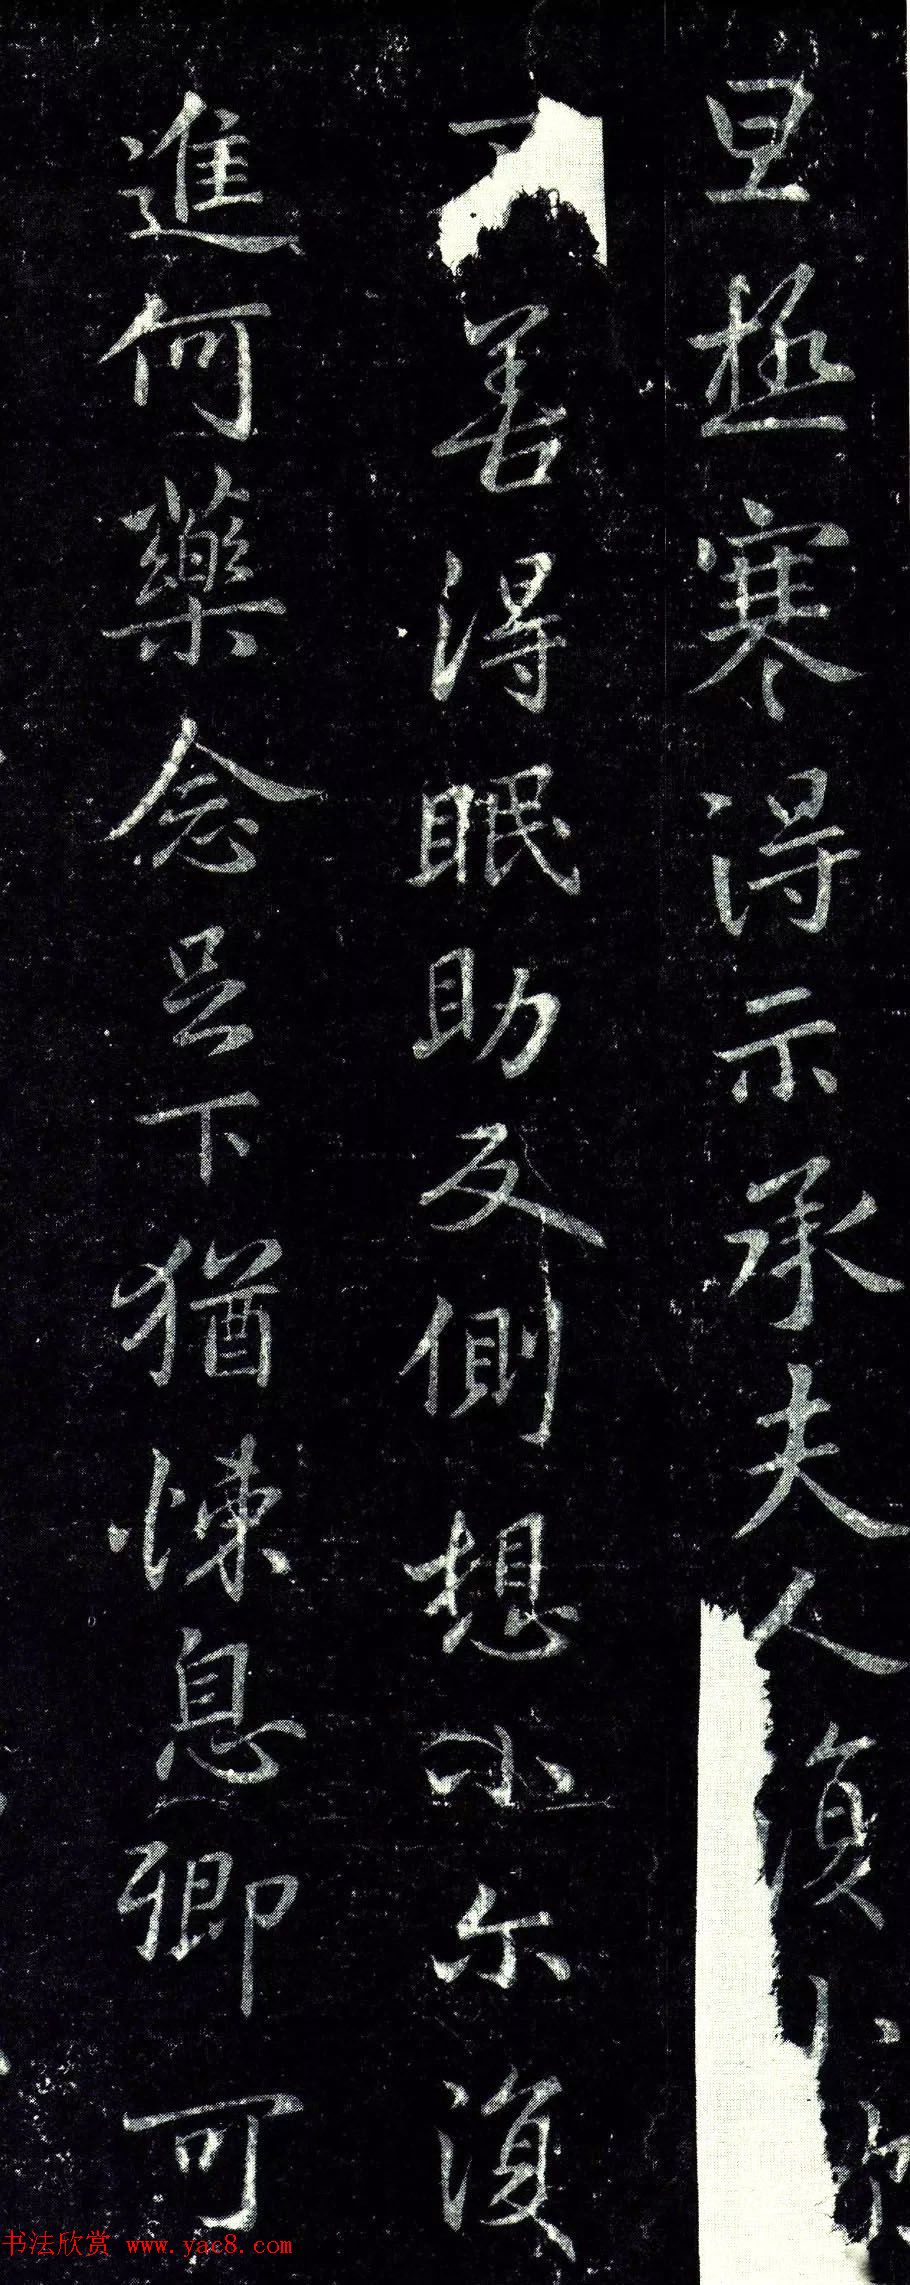 旦極寒得示承夫人復
善得眠助反側想小尓復
進何藥念足下猶悚息卿可
书法欣赏 www.yac8.com